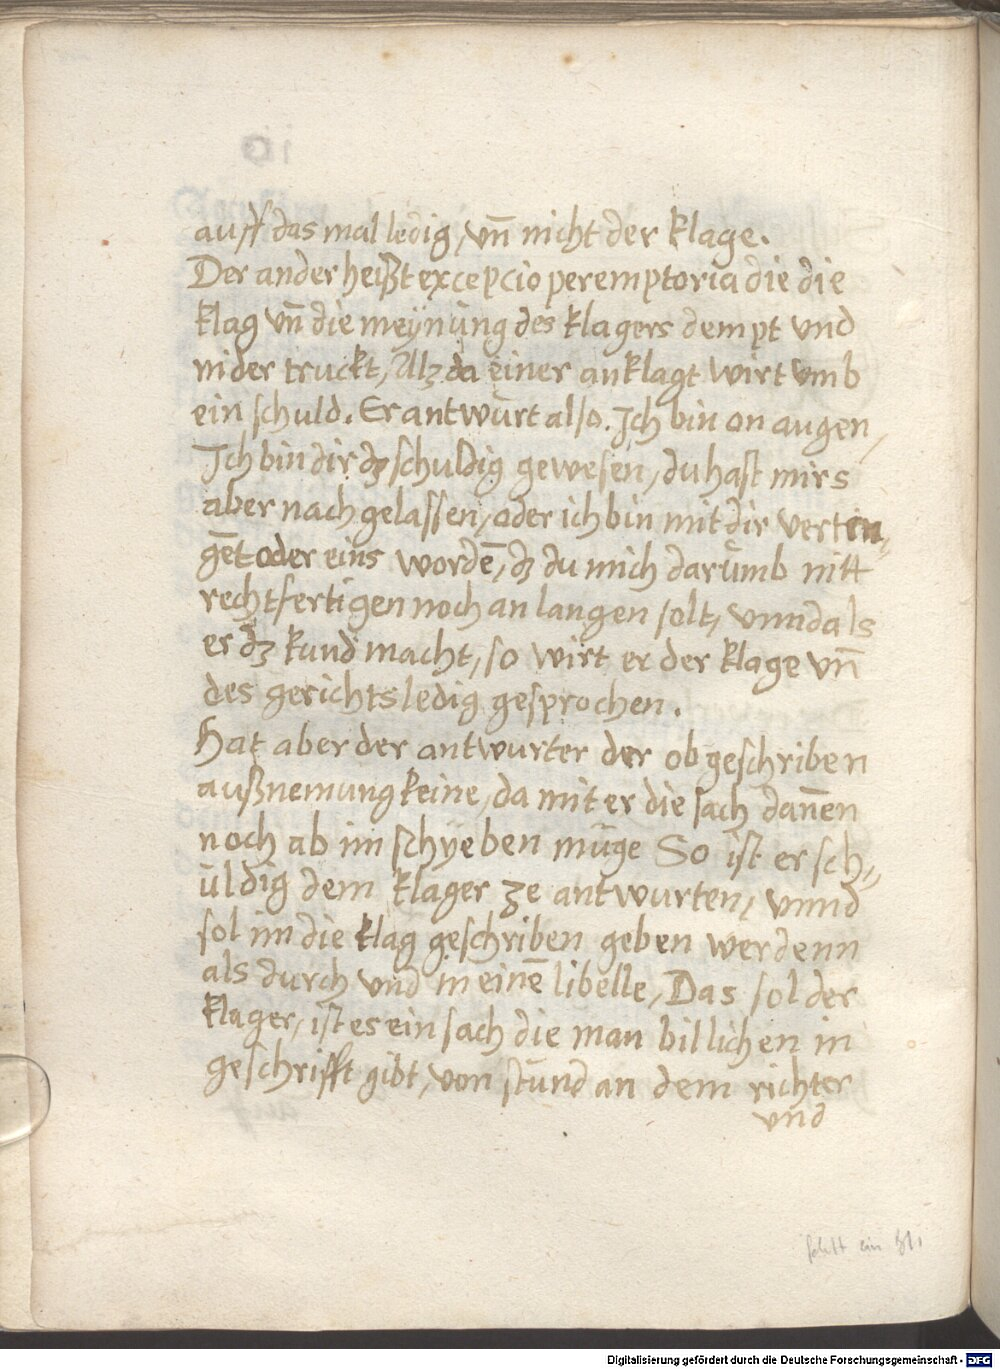 auff das mal ledig, vn̄ nicht der klage.
Der ander heißt excepcio peremptoria die die
klag vn̄ die meÿnung des klagers dempt vnd
nider truckt, Alz da einer anklagt wirt vmb
ein schuld. Er antwurt also. Jch bin on augen,
Jch bin dir dʒ schuldig gewesen, du hast mirs
aber nach gelassen, oder ich bin mit dir vertin„
get oder eins wordē, dʒ du mich darumb nitt
rechtfertigen noch an langen solt, vnnd als
er dʒ kund macht, so wirt er der klage vn̄
des gerichts ledig gesprochen.
Hat aber der antwurter der obgeschriben
außnemung keine, da mit er die sach dan̄en
noch ab im schÿeben müge So ist er sch„
uldig dem klager ze antwurten, vnnd
sol im die klag geschriben geben werdenn
als durch vnd in einē libelle, Das sol der
klager, ist es ein sach die man billichen in
geschrifft gibt, von stund an dem richter
vnd
fehlt ein Bl.
Digitalisierung gefördert durch die Deutsche Forschungsgemeinschaft - DFG